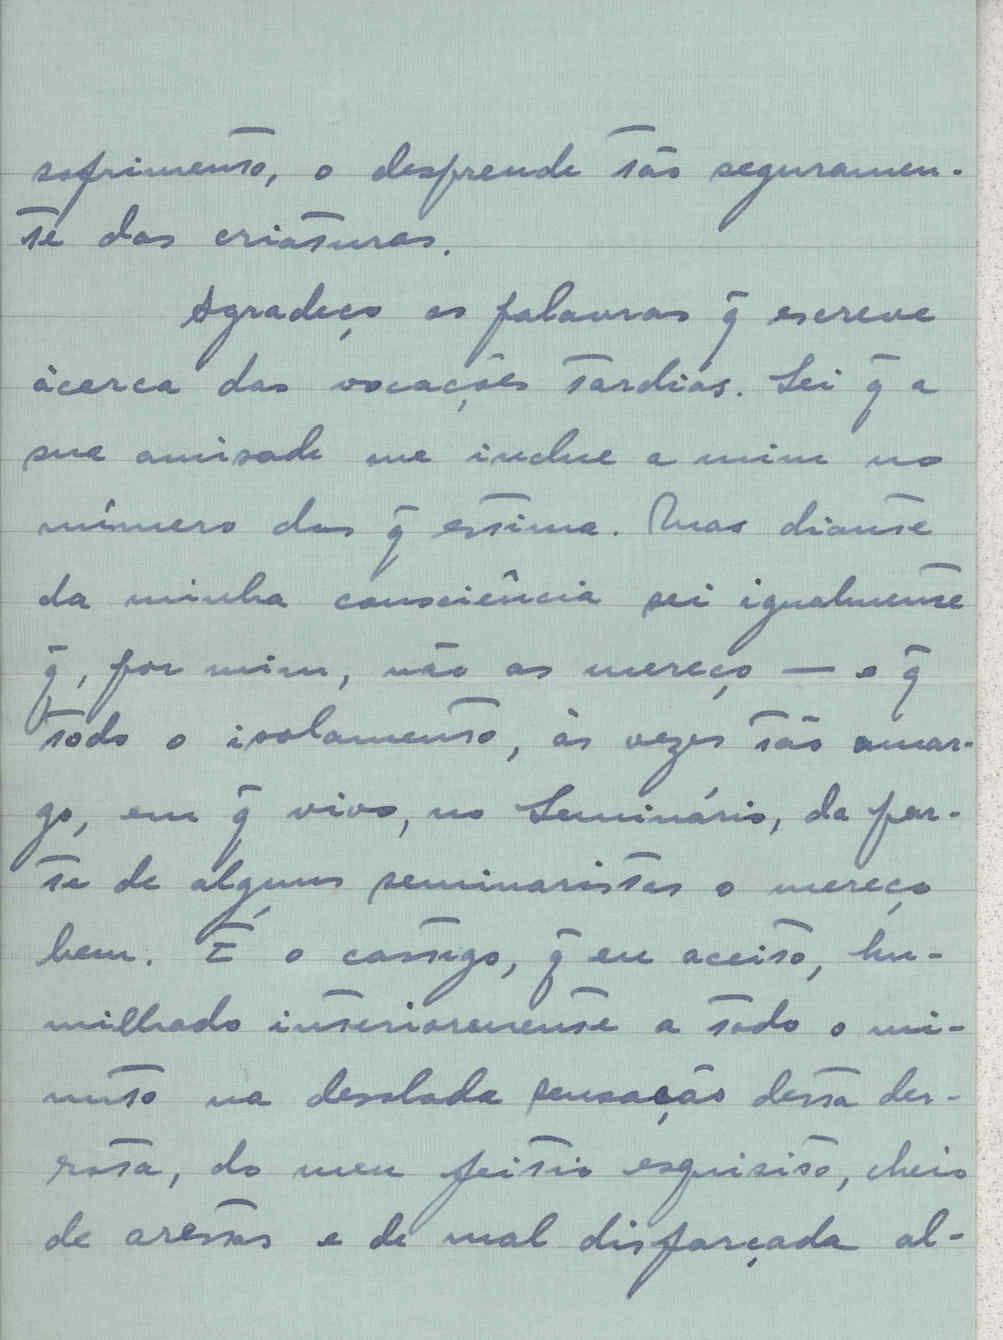 sofrimento, o desprende tão seguramen-
te das criaturas.
Agradeço as palavras q̃ escreve
àcerca das vocações tardias. Sei q̃ a
sua amisade me inclue a mim no
número das q̃ estima. Mas diante
da minha consciência sei igualmente
q̃, por mim, não as mereço — e q̃
todo o isolamento, às vezes tão amar-
go, em q̃ vivo, no Seminário, da par-
te de alguns seminaristas o mereço
bem. É o castigo, q̃ eu aceito, hu-
milhado interiormente a todo o mi-
nuto na desolada sensação desta der-
rota, do meu feitio esquisito, cheio
de arestas e de mal disfarçada al-